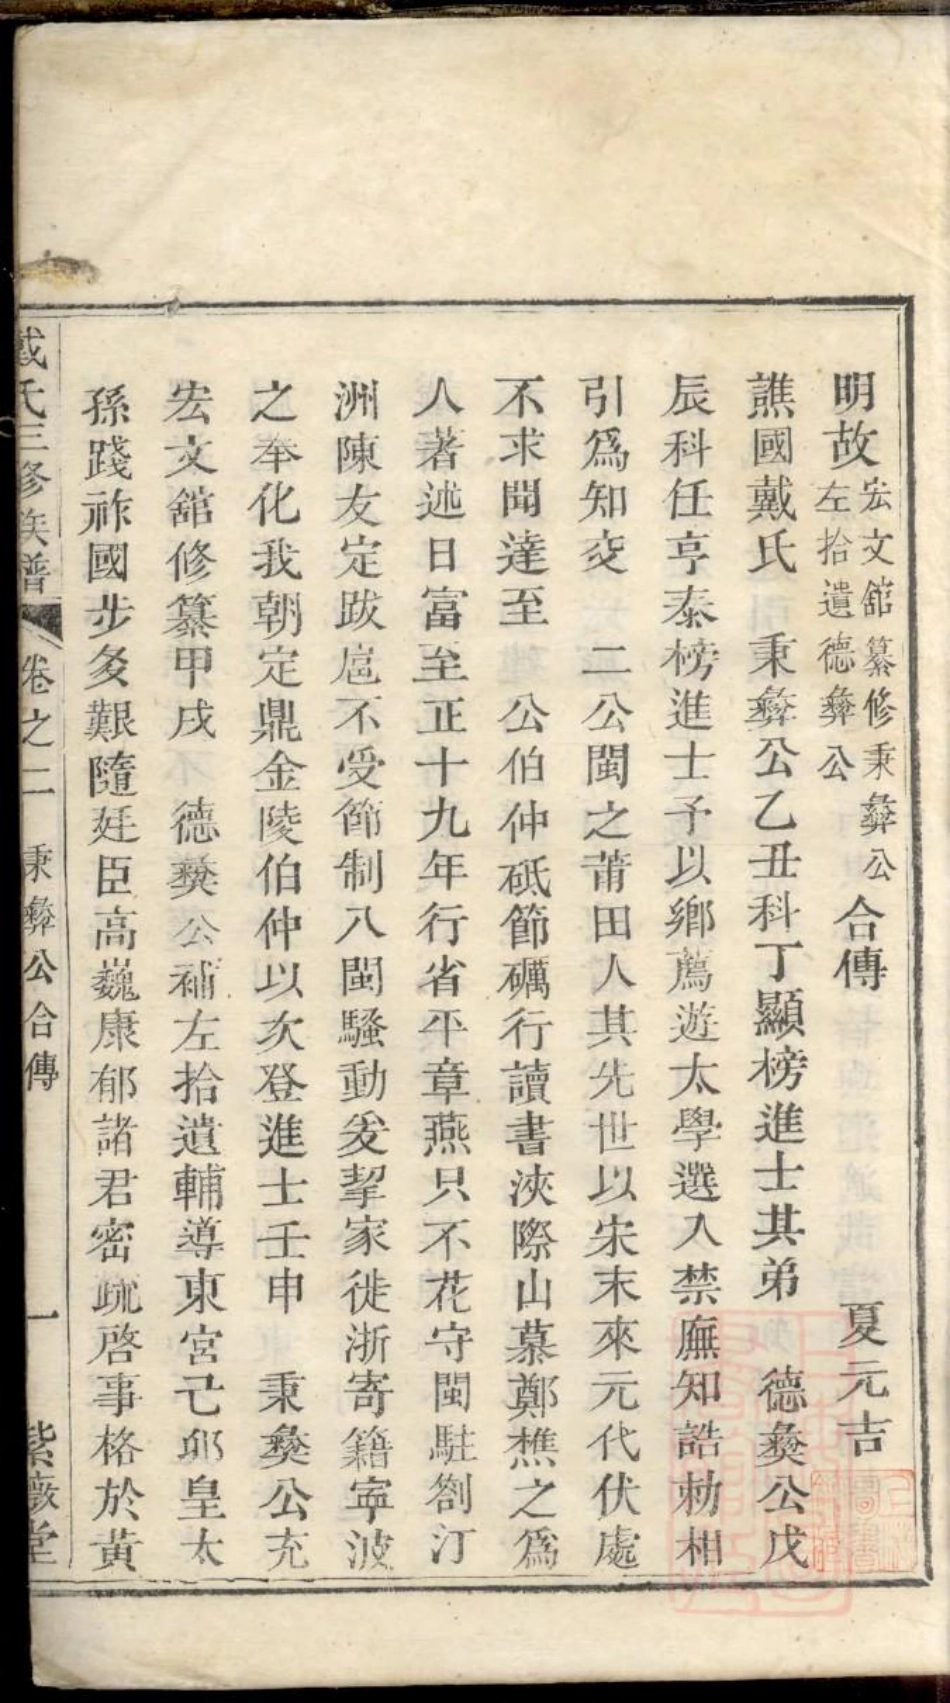 明故宏文館纂修秉彝公左拾遺德彝公合傳 夏元吉
譙國戴氏 秉彝公乙丑科丁顯榜進士其弟 德彝公戊
辰科任亨泰榜進士予以鄉薦遊太學選入禁廡知誥勅相
引爲知交 二公閩之莆田人其先世以宋末來元代伏處
不求聞達至 公伯仲砥節礪行讀書浹際山慕鄭樵之爲
人著述日富至正十九年行省平章燕只不花守閩駐劄汀
洲陳友定跋扈不受節制八閩騷動爰挈家徙浙寄籍寧波
之奉化我朝定鼎金陵伯仲以次登進士壬申 秉彝公充
宏文舘修纂甲戌 德彝公補左拾遺輔導東宮己卯皇太
孫踐祚國步多艱隨廷臣高巍康郁諸君密疏啓事格於黃
戴氏三修族譜 卷之二 秉彝公合傳 一 紫薇堂